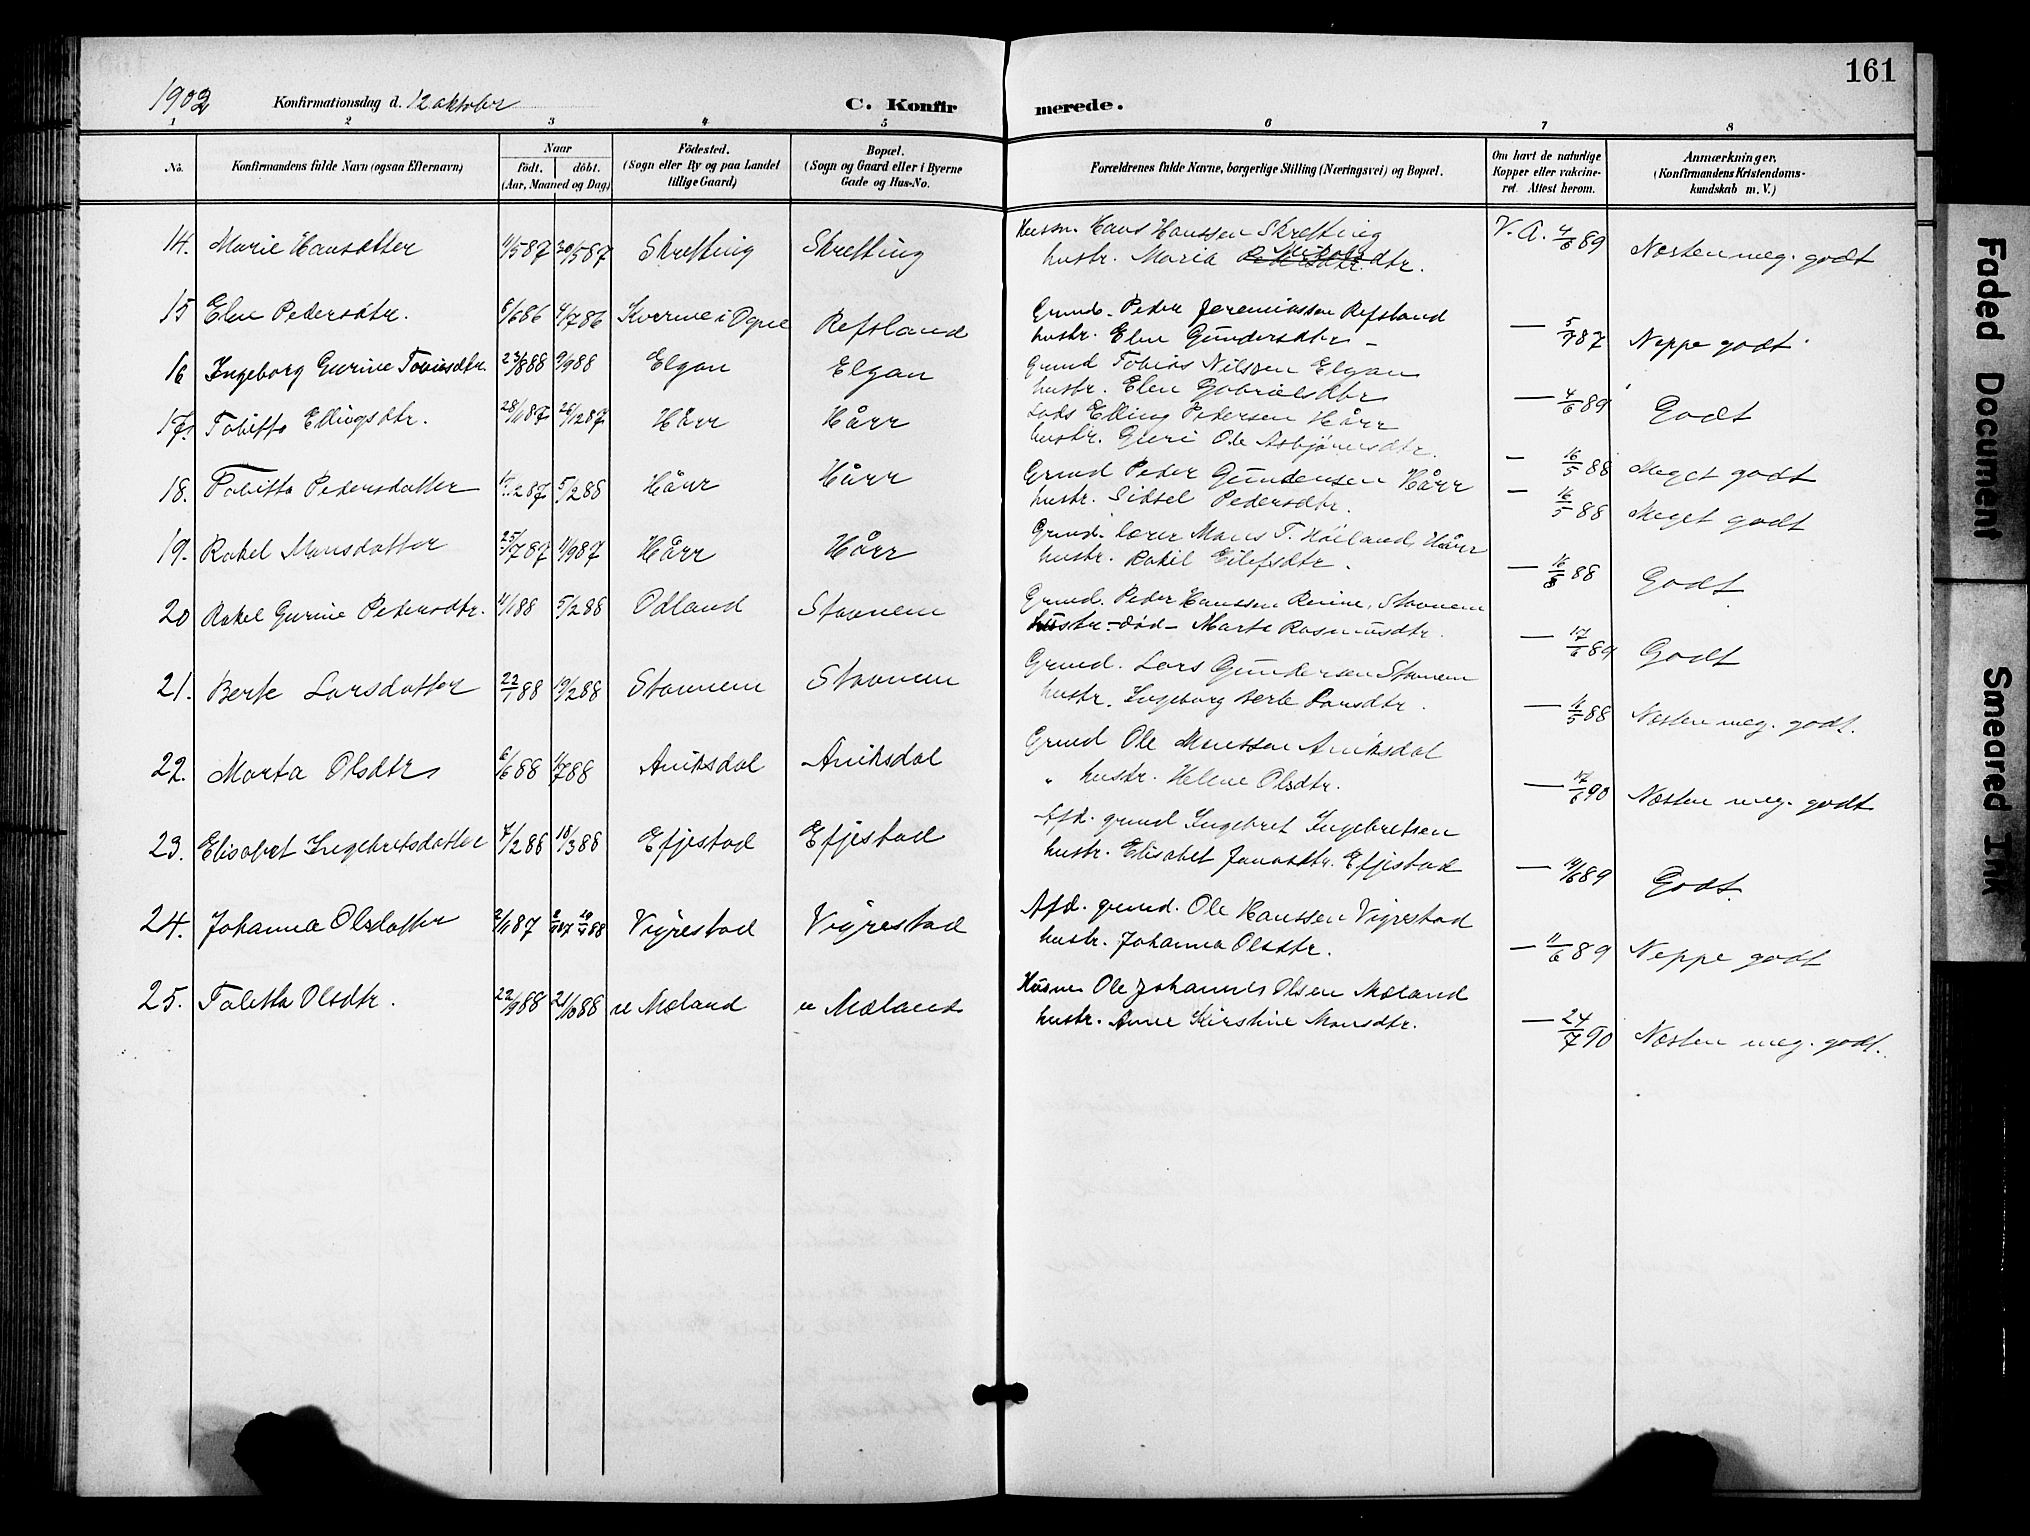 161
1902 Konfirmationsdag d. 12 oktober C. Konfirmerede.
1 2 3 4 5 6 7 8
No. Konfirmandens fulde Navn (ogsaa Efternavn) Naar födt. döbt. (Aar, Maaned og Dag) Födested. (Sogn eller By og paa Landet tillige Gaard) Bopæl. (Sogn og Gaard eller i Byerne Gade og Hus-No. Forældrenes fulde Navne, borgerlige Stilling (Næringsvei) og Bopæl. Om havt de naturlige Kopper eller vakcineret. Attest herom. Anmærkninger. (Konfirmandens Kristendomskundskab m. V.)
14. Marie Hansdatter 1/5 87 30/5 87 Skretting Skretting Husm. Hans Hanssen Skretting V. A. 4/6 89 Næsten meg. godt
hustr. Maria dtr.
15 Elen Pedersdtr. 6/6 86 4/7 86 i Ogne Refsland Grund. Peder Jeremiassen Refsland — 5/7 87 Neppe godt
hustr. Elen Gundersdtr
16 Ingeborg Gurine Tobiasdtr. 23/8 88 9/9 88 Elgan Elgan Grund Tobias Nilssen Elgan — 4/6 89 Godt
hustr. Elen Gabrielsdtr
17. Tobitta Ellingsdtr. 28/11 87 26/12 87 Hårr Hårr Elling Pedersen Hårr — 16/5 88 Meget godt
hustr. Guri Ole Asbjönsdtr.
18. Tobitta Pedersdatter 5/2 88 Hårr Hårr Grund Peder Gundersen Hårr — 16/5 88 Meget godt
hustr. Sidsel Pedersdtr.
19. Rakel Mansdatter 25/7 87 11/9 87 Hårr Hårr Grund. lærer Mans T. Höiland, Hårr — 16/5 88 Godt
hustr. Rakel Eilefsdtr.
20 Rakel Gurine Pedersdtr. 4/1 88 5/2 88 Odland Stavnem Grund. Peder Hanssen Reime, Stavnem — 17/6 89 Godt
hustr. – död – Marta Rasmusdtr.
21. Berte Larsdatter 22/1 88 19/2 88 Stavnem Stavnem Grund. Lars Gundersen Stavnem — 16/5 88 Næsten meg. godt.
hustr. Ingeborg Serte Larsdtr.
22. Marta Olsdtr 6/6 88 1/7 88 Aniksdal Aniksdal Grund Ole Monssen Aniksdal — 17/6 90 Næsten meg. godt
" hustr. Helene Olsdtr.
23. Elisabet Ingebretsdatter 7/2 88 18/3 88 Efjestad Efjestad Afd. grund Ingebret Ingebretsen — 19/6 89 Godt.
hustr. Elisabet Jonasdtr. Efjestad
24. Johanna Olsdatter 2/11 87 Vigrestad Vigrestad Afd. grund. Ole Hanssen Vigrestad — 11/6 89 Neppe godt
hustr. Johanna Olsdtr.
25. Taletta Olsdtr. 22/9 88 21/10 88 n Mæland n Mæland Husm Ole Johannes Olsen Mæland — 24/7 90 Næsten meg. godt.
hustr. Anne Kirstine Monsdtr.
Faded Document
Smeared Ink